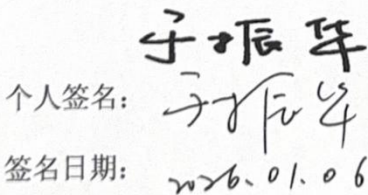 于振华
个人签名：于振华
签名日期：2026.01.06